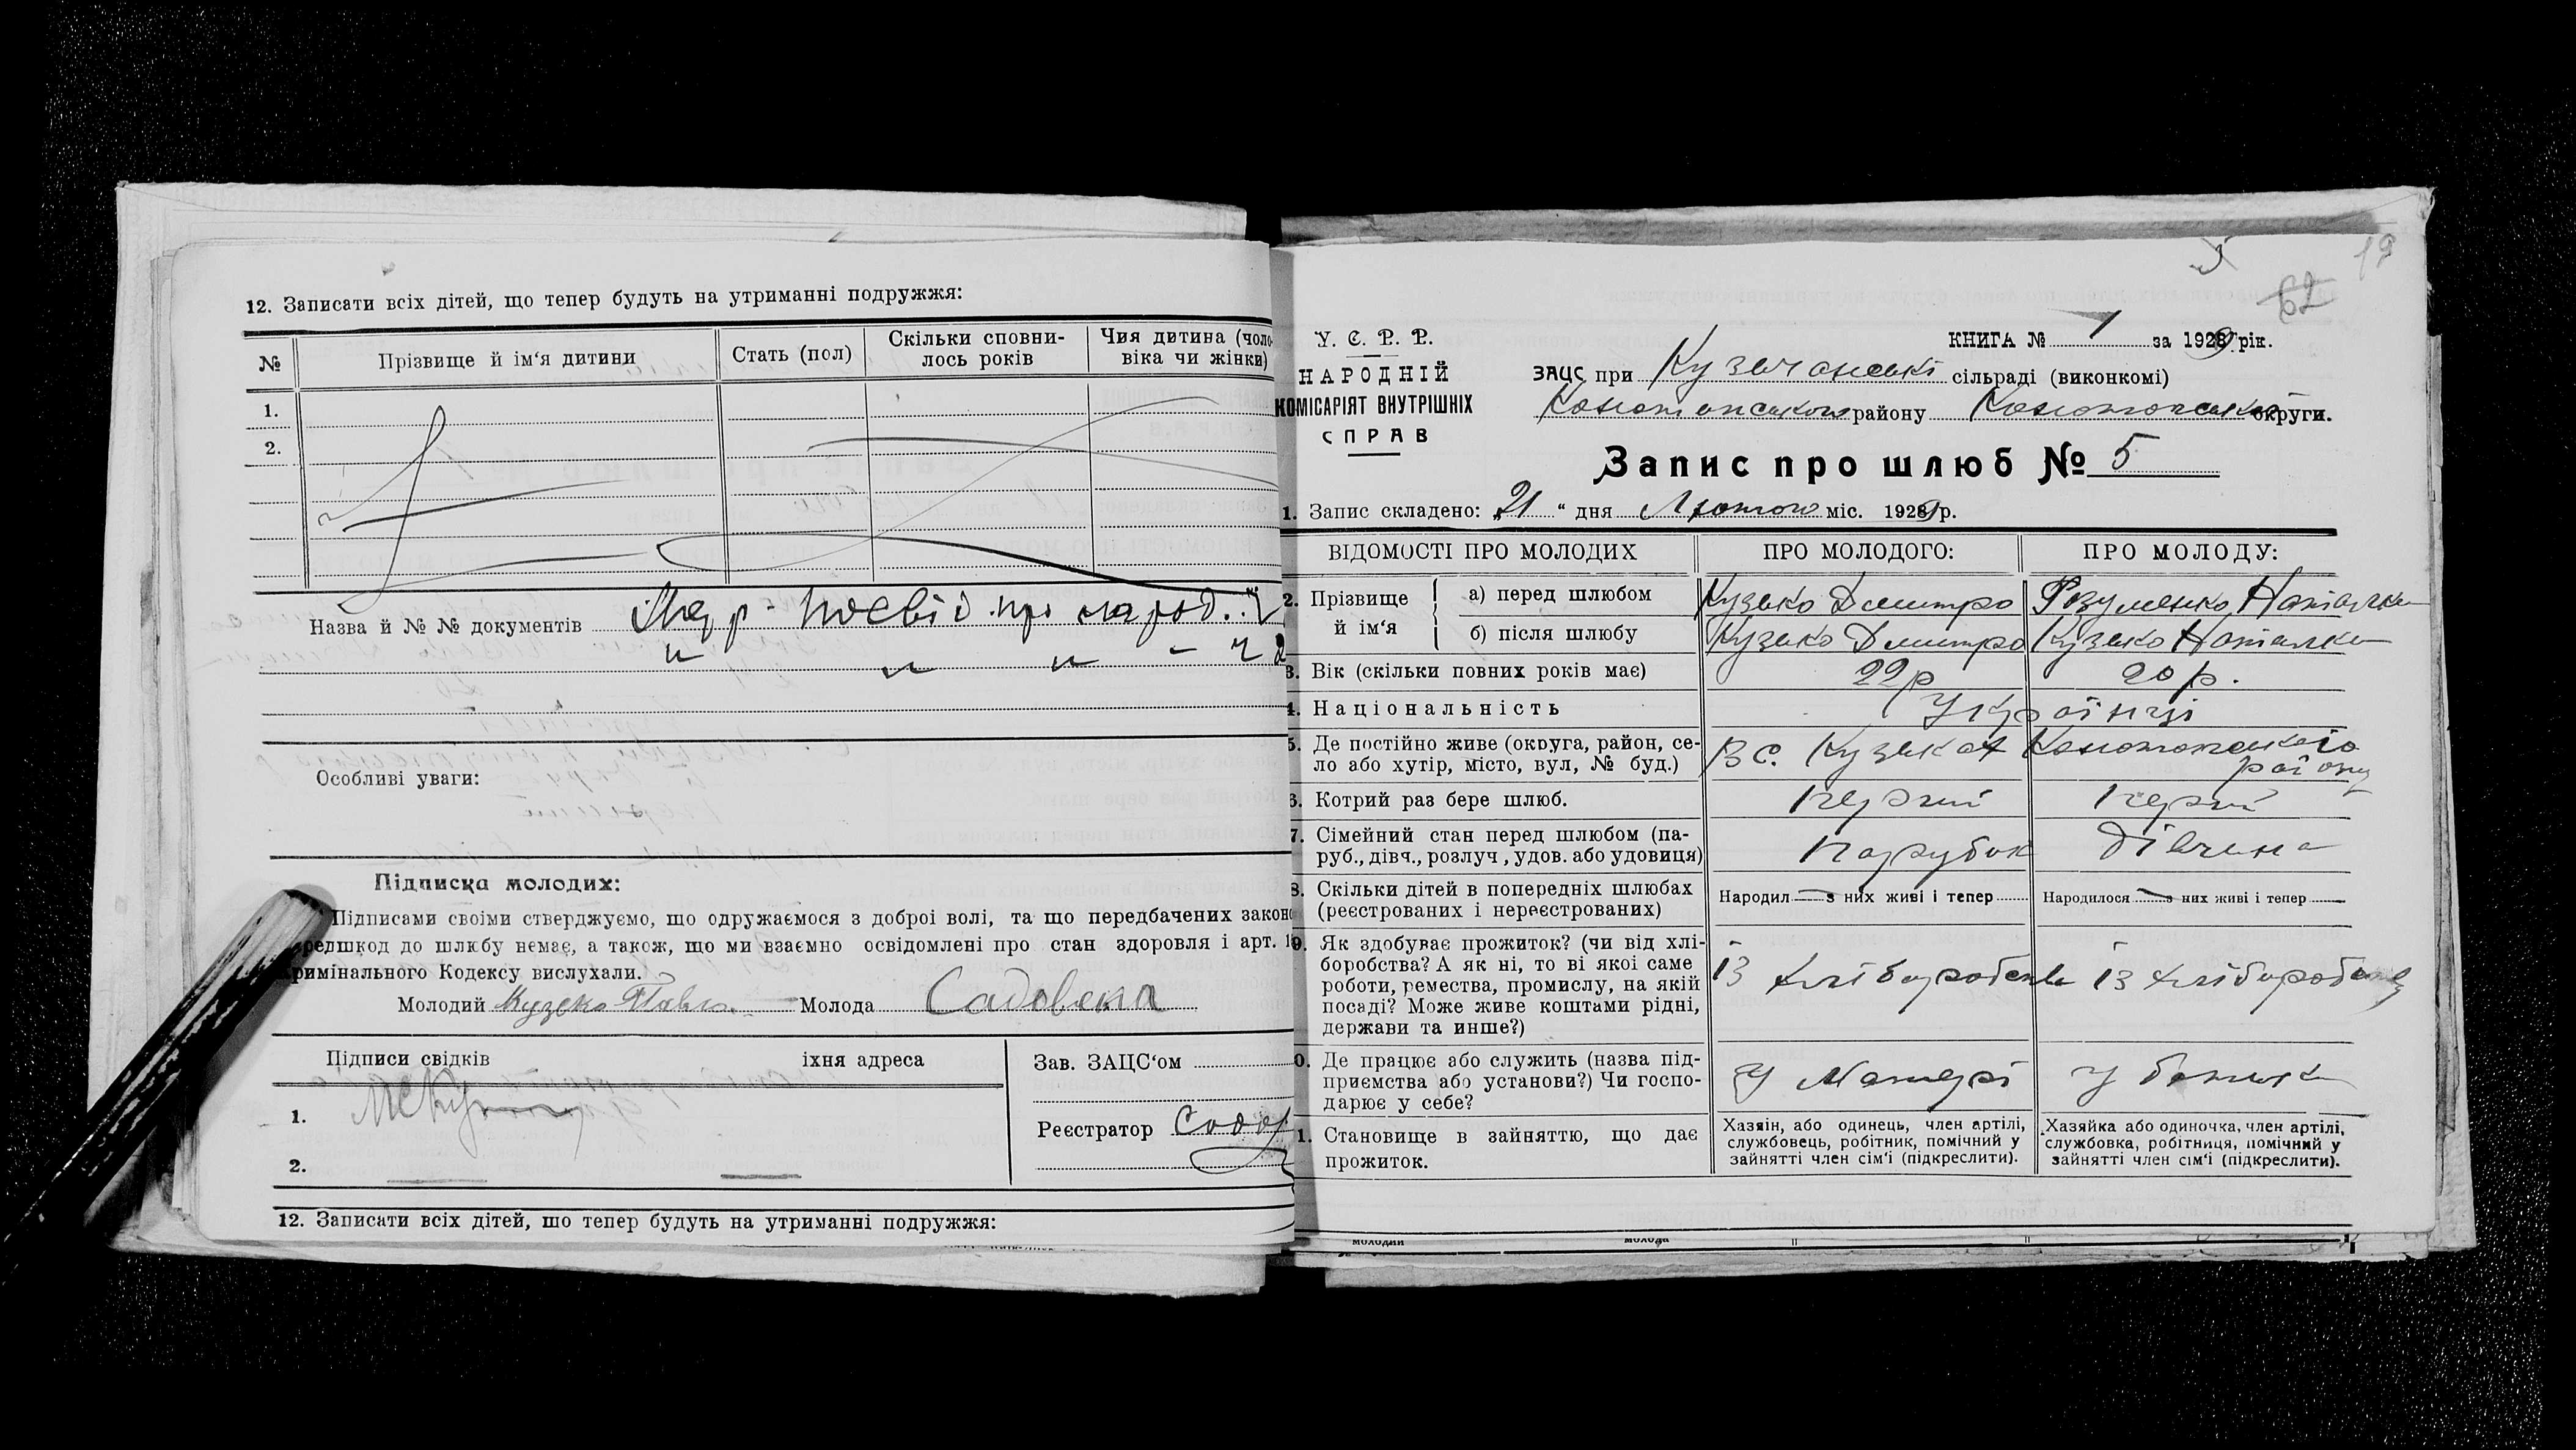 12. Записати всіх дітей, що тепер будуть на утриманні подружжя:
№ Прізвище й ім‘я дитини Стать (пол) Скільки сповни-лось років Чия дитина (чоло віка чи жінки)
1.
2.
Назва й № № документів про народ.
Особливі уваги:
Підписка молодих:
Підписами своїми стверджуємо, що одружаємося з доброї волі, та що передбачених закон
редшкод до шлюбу немає, а також, що ми взаємно освідомлені про стан здоровля і арт. 1
римінального Кодексу вислухали.
Молодий Кузько Павло Молода Садовека
Підписи свідків їхня адреса
Зав. ЗАЦС‘ом
1.
Реєстратор
2.
12. Записати всіх дітей, шо тепер будуть на утриманні подружжя:
19
62
У. С. Р. Р.
НАРОДНІЙ
КОМІСАРІЯТ ВНУТРІШНІХ
СПРАВ
КНИГА № 1 за 1929 рік.
ЗАЦС при сільраді (виконкомі)
Конотопського району Конотопської округи.
Запис про шлюб № 5
1. Запис складено: „21 “ дня Лютого міс. 1929 р.
ВІДОМОСТІ ПРО МОЛОДИХ ПРО МОЛОДОГО: ПРО МОЛОДУ:
2. Прізвище й ім‘я
а) перед шлюбом Кузько Дмитро Розуменко Наталка
б) після шлюбу Кузько Дмитро Кузько Наталка
3. Вік (скільки повних років має) 22р 20р.
4. Національність Українці
5. Де постійно живе (округа, район, се-
ло або хутір, місто, вул, № буд.)
В с. Кузьках Конотопського
району
6. Котрий раз бере шлюб. перший перший
7. Сімейний стан перед шлюбом (па-
руб., дівч., розлуч, удов. або удовиця)
Парубок Дівчина
8. Скільки дітей в попередніх шлюбах
(реєстрованих і нереєстрованих)
Народил з них живі і тепер Народилося з них живі і тепер
9. Як здобуває прожиток? (чи від хлі-
боробства? А як ні, то ві якої саме
роботи, ремества, промислу, на якій
посаді? Може живе коштами рідні,
держави та инше?)
Із хліборобства Із хліборобства
0. Де працює або служить (назва під-
приємства або установи?) Чи госпо-
дарює у себе?
У Матері у батька
1. Становище в зайняттю, що дає
прожиток.
Хазяін, або одинець, член артілі,
службовець, робітник, помічний у
зайнятті член сім‘ї (підкреслити).
Хазяйка або одиночка, член артілі,
службовка, робітниця, помічний у
зайнятті член сім‘ї (підкреслити).
молодий молода